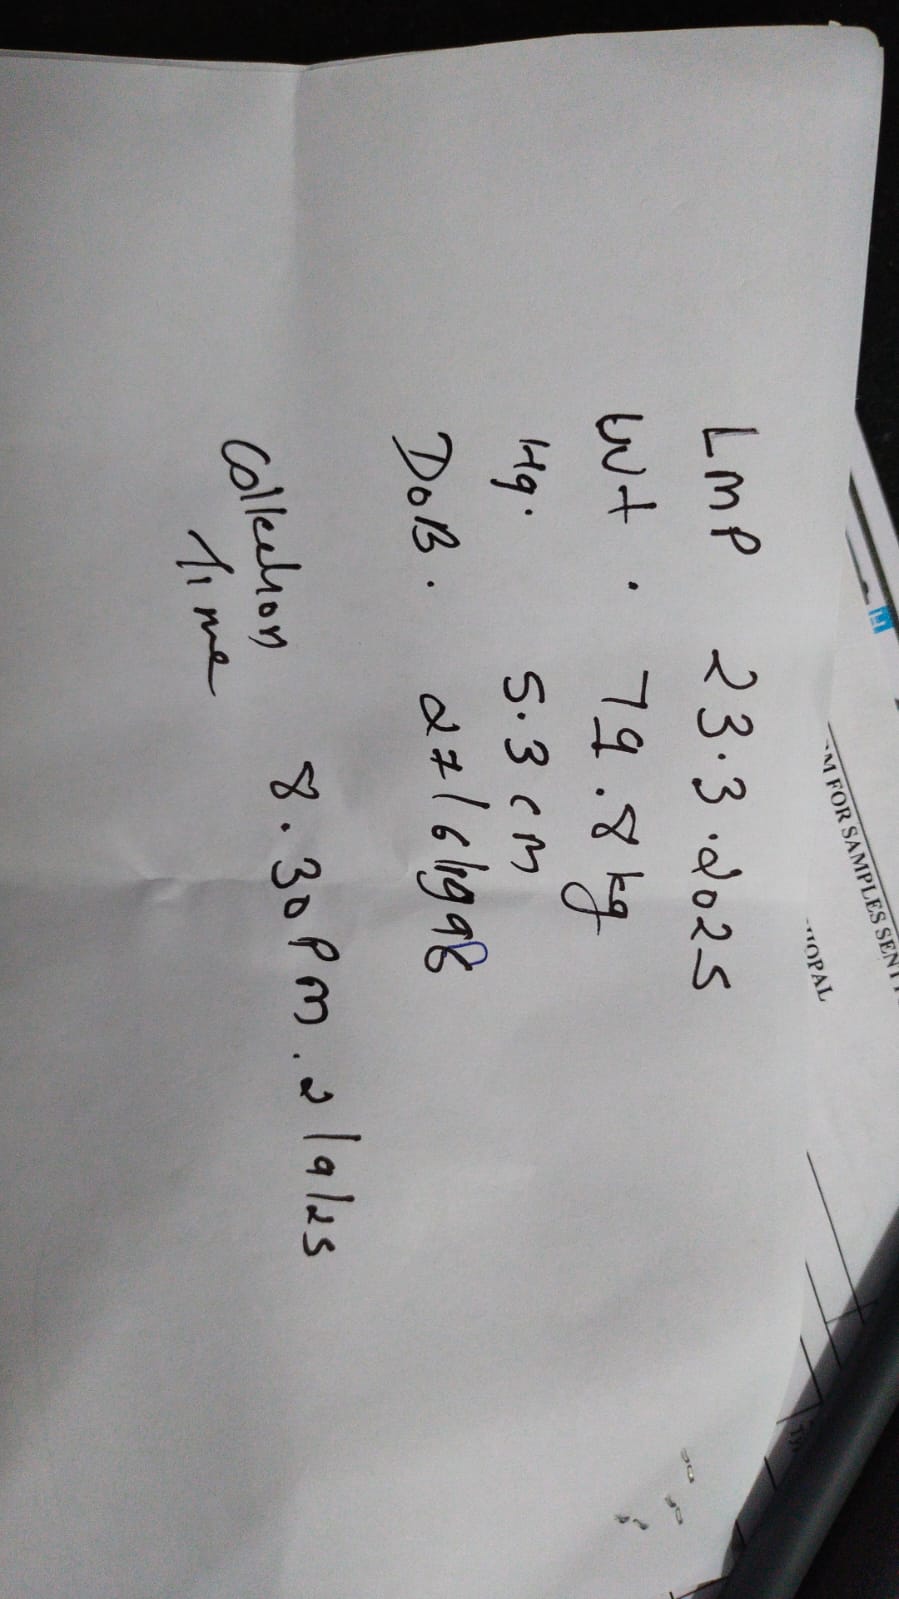 M FOR SAMPLES SENT
OPAL
LMP 23.3.2025
Wt. 79.8 kg
Hg. 5.3 cm
DoB. 27/6/1998
Collection Time 8.30 Pm. 2/9/25